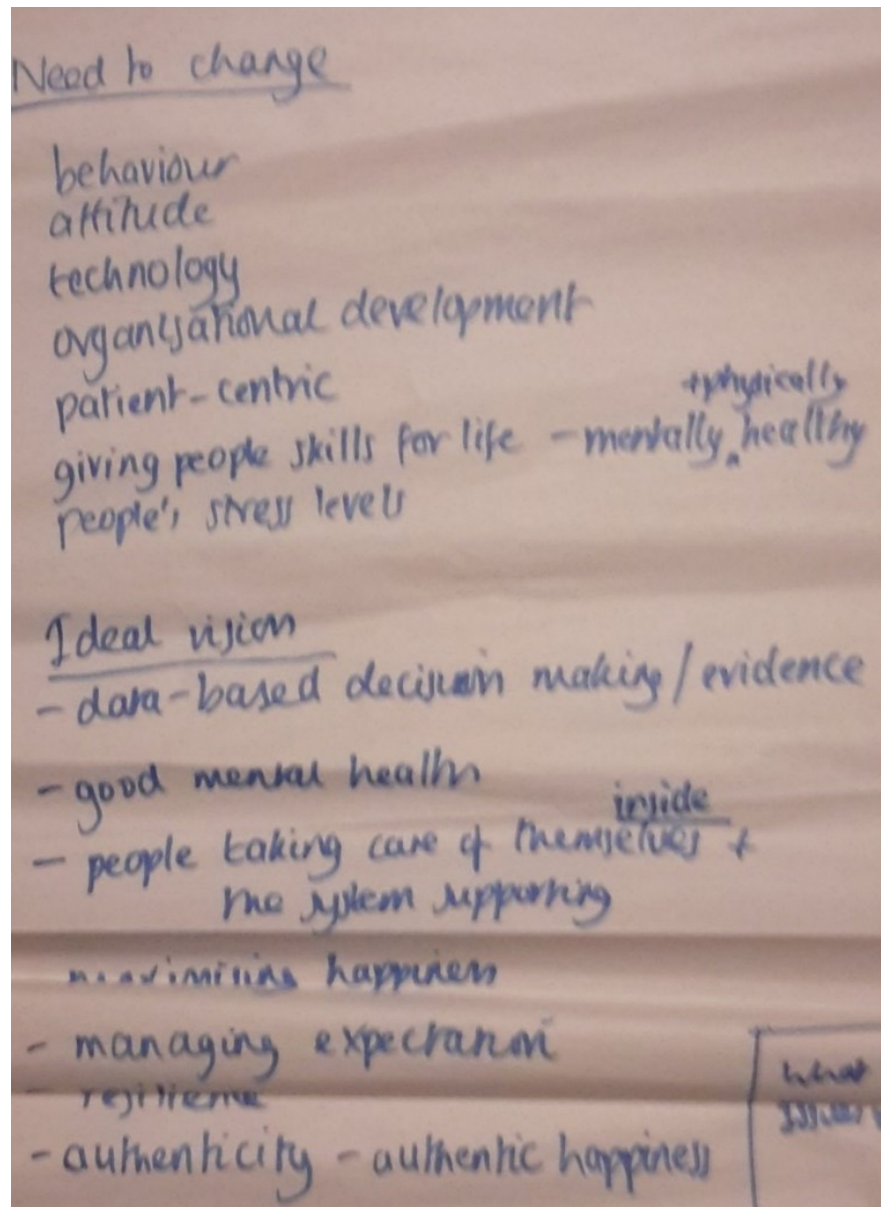 Need to change
behaviour
attitude
technology
organisational development
patient-centric
+physically
giving people skills for life - mentally ‸ healthy
people's stress levels
Ideal vision
- data-based decision making / evidence
- good mental health
inside
- people taking care of themselves +
the system supporting
maximising happiness
- managing expectation
- resilience
- authenticity - authentic happiness
what